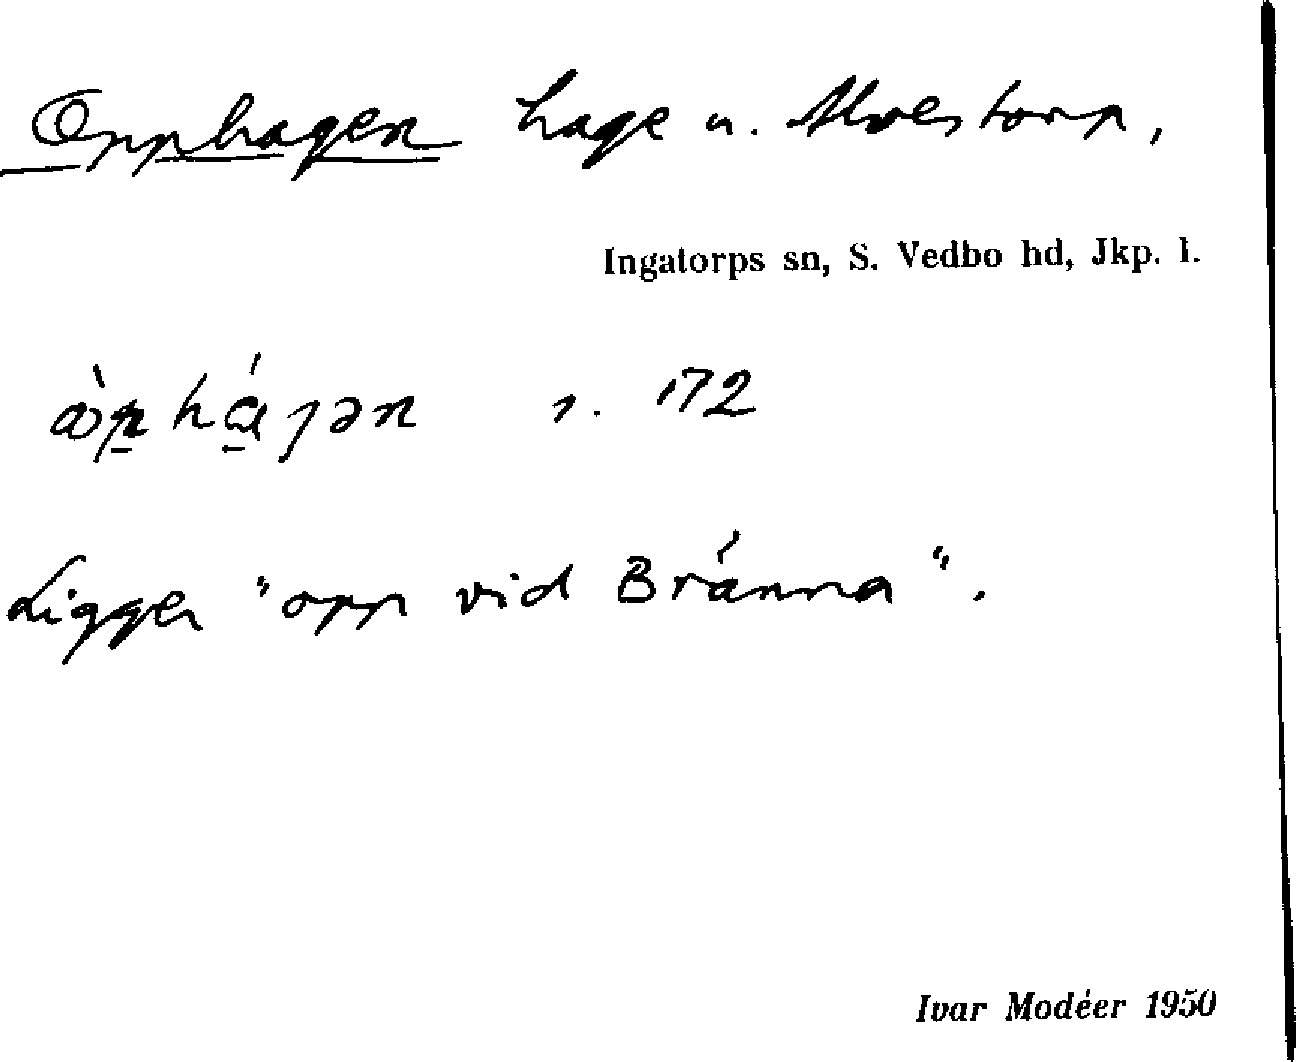 Opphagen hage u. Alvestorp,
Ingatorps sn, S. Vedbo hd, Jkp. l.
s. 172
Ligger "opp vid Bränna".
Ivar Modéer 1950